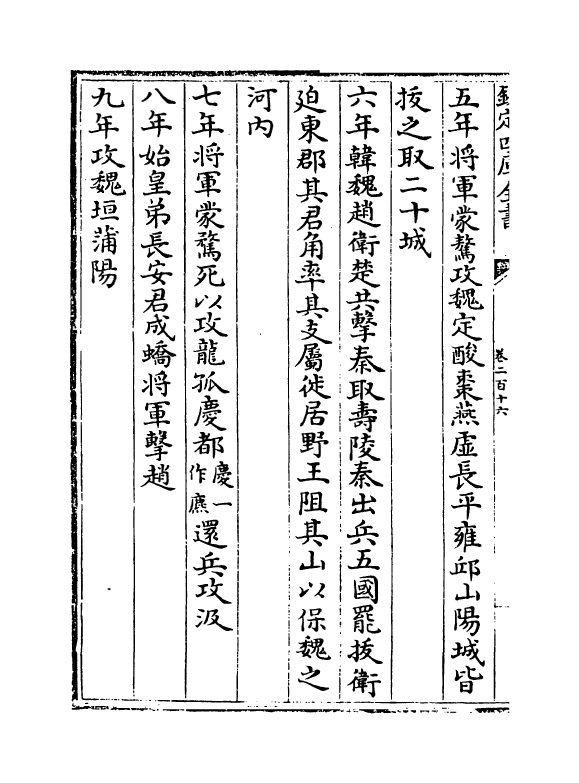 欽定四庫全書
卷二百十六
五年将軍蒙驁攻魏定酸棗燕虚長平雍邱山陽城皆
拔之取二十城
六年韓魏趙衛楚共擊秦取壽陵秦出兵五國罷拔衛
廹東郡其君角率其支屬徙居野王阻其山以保魏之
河内
七年将軍蒙驁死以攻龍孤慶都慶一作麃還兵攻汲
八年始皇弟長安君成蟜将軍擊趙
九年攻魏垣蒲陽